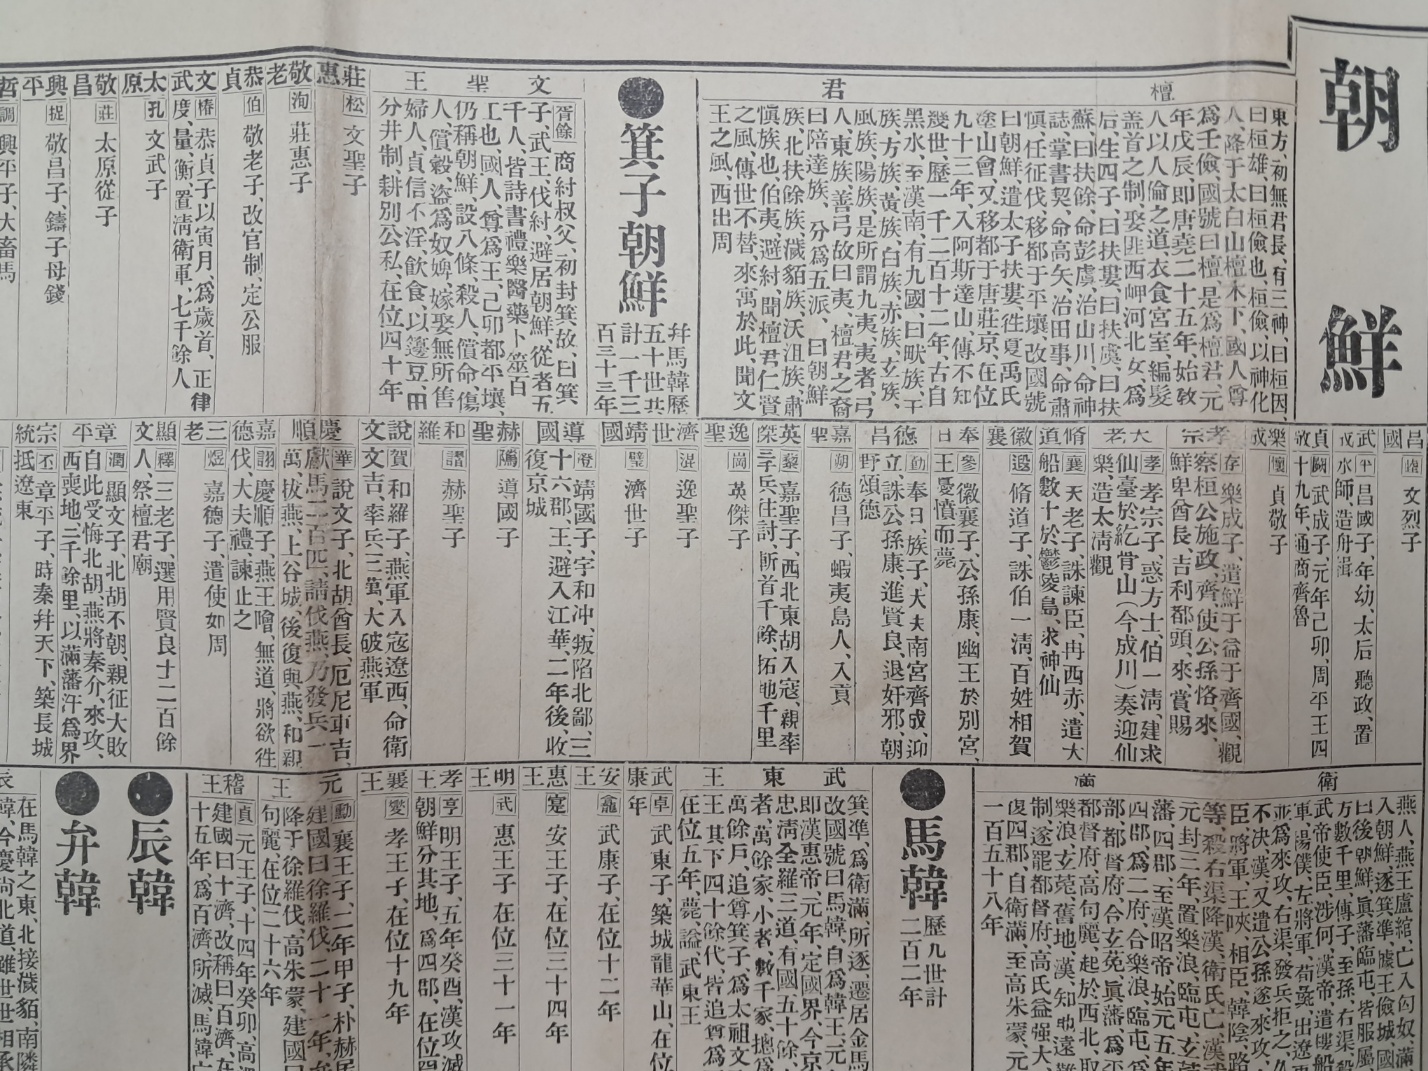 朝鮮
檀君
東方、初無君長、有三神、曰桓因、
曰桓雄、曰桓儉也、桓儉、以神化
人、降于太白山檀木下、國人尊
爲壬儉、國號曰檀、是爲檀君、元
年戊辰、即唐堯二十五年、始敎
人以人倫之道、衣食宮室、編髮
盖首之制、娶匪西岬河北女、爲
后生四子、曰扶婁、曰扶虞、曰扶
蘇、曰扶餘、命彭虞、治山川、命神
誌、掌書契、命高矢、治田事、命肅
愼、任征伐、移都于平壤、改國號
曰朝鮮、遣太子扶婁徃夏禹氏
塗山會、又移都于唐莊京、在位
九十三年、入阿斯達山、傳不知
幾世、歷一千二百十二年、古自
黑水、至漢南、有九國、曰畎族、于
族、方族、黃族、白族、赤族、玄族、
風族、陽族、是所謂九夷、夷者、弓
人、東族、善弓、故曰夷、檀君之裔
曰陪達族、分爲五派、曰朝鮮
族、北扶餘族、濊貊族、沃沮族、肅
愼族也、伯夷、避紂、聞檀君仁賢
之風、傳世不替、來寓於此、聞文
王之風、西出周
箕子朝鮮
幷馬韓歷
五十世共
計一千三
百三十三年
文聖王
胥餘 商紂叔父、初封箕故、曰箕
子、武王伐紂、避居朝鮮、從者五
千人、皆詩書禮樂醫藥卜筮百
工也、國人、尊爲王、己卯都平壤、
仍稱朝鮮、設八條、殺人、償命、傷
人、償穀、盜爲奴婢、嫁娶無所售
婦人、貞信不淫、飮食、以籩豆、田
分井制、耕別公私、在位四十年
莊惠
松 文聖子
敬老
洵 莊惠子
恭貞
伯 敬老子、改官制、定公服
文武
椿 恭貞子以寅月、爲歲首、正律
度、量、衡、置淸衛軍、七千餘人
太原
孔 文武子
敬昌
莊 太原從子
興平
捉 敬昌子、鑄子母錢
哲
調 興平子、大畜馬
昌國
文烈子
武成
平 昌國子、年幼、太后聽政、置
水師、造舟楫
貞敬
闕 武成子、元年己卯、周平王四
十九年、通商齊魯
樂成
懷 貞敬子
孝宗
存 樂成子、遣鮮于益于齊國、觀
察桓公施政、齊、使公孫恪、來、
鮮卑酋長、吉利都頭、來、賞賜
天老
孝 孝宗子、惑方士、伯一淸、建求
仙臺於紇骨山（今成川）奏迎仙
樂、造太淸觀
脩道
襄 天老子、誅諫臣、冉西赤、遣大
船數十於鬱陵島、求神仙
徽襄
邇 脩道子、誅伯一淸、百姓相賀
奉日
參 徽襄子、公孫康、幽王於別宮、
王憂憤而薨
德昌
勤 奉日、族子、大夫南宮齊成、迎
立、誅公孫康、進賢良、退奸邪、朝
野頌德
嘉聖
朔 德昌子、蝦夷島人、入貢
英傑
藜 嘉聖子、西北東胡入寇、親率
孑兵往討、斬首千餘、拓地千里
逸聖
崗 英傑子
濟世
混 逸聖子
靖國
璧 濟世子
導國
澄 靖國子、宇和冲、叛陷北鄙、三
十六郡、王、避入江華、二年後、收
復京城
赫聖
隲 導國子
和羅
䜌 赫聖子
說文
賀 和羅子、燕軍入寇遼西、命衛
文吉、率兵三萬、大破燕軍
慶順
華 說文子、北胡酋長、厄尼車吉、
獻馬二百匹、請伐燕、乃發兵一
萬、拔燕、上谷城、後復與燕、和親
嘉德
詡 慶順子、燕王噲、無道、將欲徃
伐、大夫禮、諫止之
三老
煜 嘉德子、遣使如周
顯文
釋 三老子、選用賢良十二百餘
人、祭檀君廟
章平
潤 顯文子、北胡不朝、親征大敗
自此受侮北胡、燕將秦介、來攻、
西喪地二千餘里、以滿藩汗爲界
宗統
丕 章平子、時秦幷天下、築長城
抵遼東
衛滿
燕人、燕王盧綰、亡入匈奴、滿
入朝鮮、遂箕準、據王儉城、國
曰後朝鮮、眞藩臨屯、皆服屬
方數千里、傳子、至孫、右渠、殺
武帝使臣涉何、漢帝、遣樓船
軍、楊僕、左將軍、荀彘、出遼東
竝爲來攻、右渠、發兵拒之、久
不決、漢又遣公孫遂、來攻、
臣、將軍、王唊、相臣、韓陰、路
等、殺右渠降漢、衛氏亡、漢武
元封三年、置樂浪、臨屯、玄菟
藩四郡、至漢昭帝、始元五年
四郡、爲二府、合樂浪、臨屯、爲
部都督府、合玄菟、眞藩、爲平
都督府、高句麗、起於西北、取
樂浪、玄菟、舊地、漢、知地遠難
制、遂罷都督府、高氏益强大、
復四郡、自衛滿、至高朱蒙、元
一百五十八年
馬韓
歷九世計
二百二年
武東王
箕準、爲衛滿、所逐、遷居金馬
改國號曰馬韓、自爲韓王、元
即漢惠帝、元年、定國界、今京
忠淸全羅三道、有國五十餘、
者、萬餘家、小者、數千家、摠爲
萬餘戶、追尊箕子、爲太祖文
王、其下四十餘代、皆追尊爲
在位五年、薨、謚、武東王
武康
卓 武東子、築城龍華山、在位
年
安王
龕 武康子、在位十二年
惠王
寔 安王子、在位三十四年
明王
武 惠王子、在位三十一年
孝王
亨 明王子、五年癸酉、漢攻滅
朝鮮分其地、爲四郡、在位四
襄王
燮 孝王子、在位十九年
元王
勳 襄王子、二年甲子、朴赫居
建國曰徐羅伐、二十一年、弁
降于徐羅伐、高朱蒙、建國曰
句麗、在位二十六年
稽王
貞 元王子、十四年癸卯、高溫
建國曰十濟、改稱曰百濟、在
十五年、爲百濟、所滅、馬韓亡
辰韓
弁韓
在馬韓之東、北接濊貊、南隣
韓、今慶尙北道、雖世世相承
辰